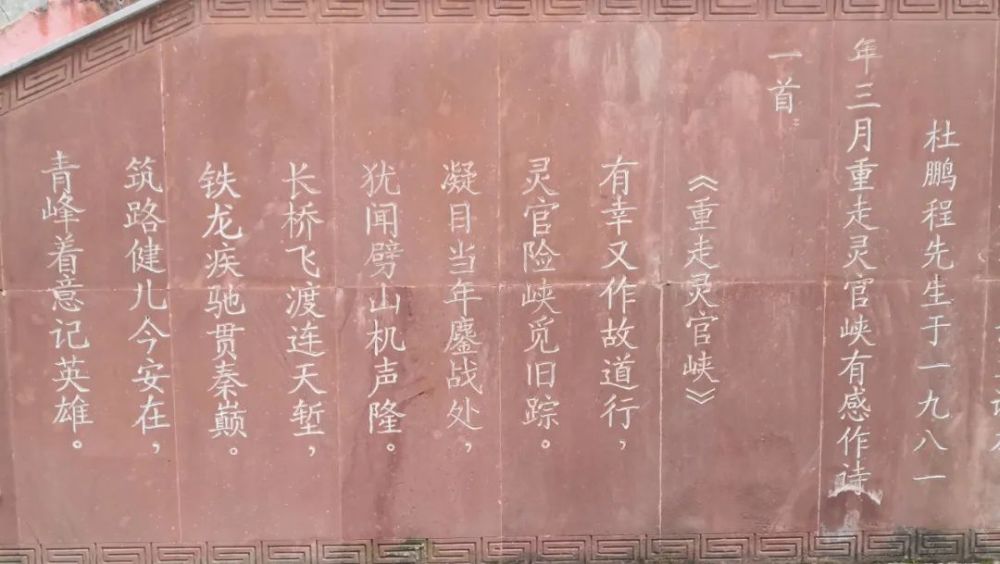 杜鹏程先生于一九八一
年三月重走灵官峡有感作诗
一首：
《重走灵官峡》
有幸又作故道行，
灵官险峡觅旧踪。
凝目当年鏖战处，
犹闻劈山机声隆。
长桥飞渡连天堑，
铁龙疾驰贯秦巅。
筑路健儿今安在，
青峰着意记英雄。